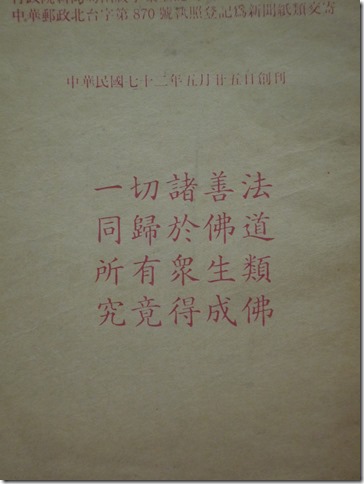 中華郵政北台字第870號執照登記為新聞紙類交寄
中華民國七十二年五月廿五日創刊
一切諸善法
同歸於佛道
所有眾生類
究竟得成佛